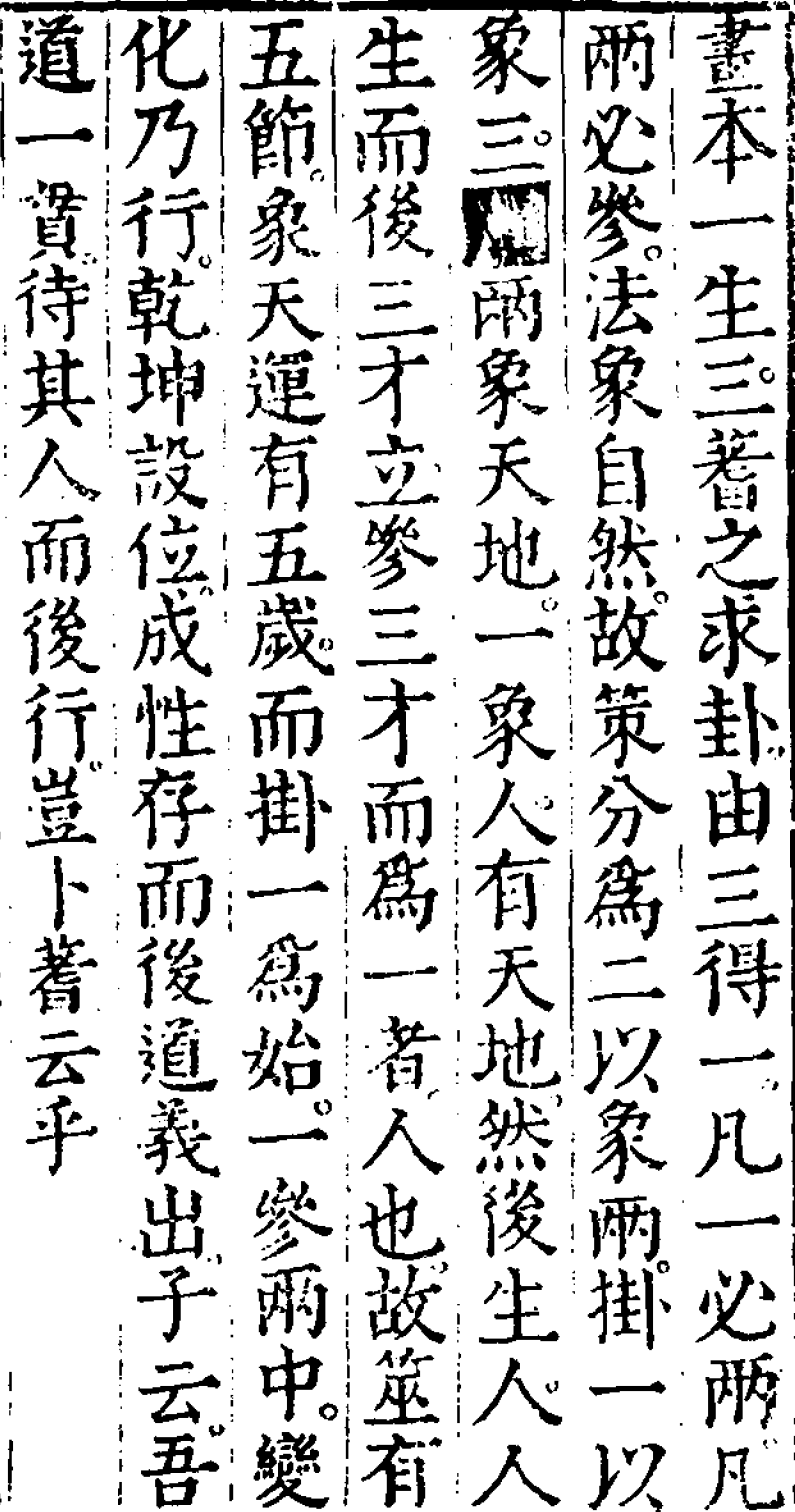 畫本一生三。蓍之求卦。由三得一。凡一必兩。凡
兩必參。法象自然。故策分爲二以象兩。掛一以
象三。兩象天地。一象人。有天地。然後生人。人
生而後三才立參三才而爲一者。人也。故筮有
五節。象天運有五歲。而掛一爲始。一參兩中。變
化乃行。乾坤設位。成性存而後道義出。子云。吾
道一貫。待其人。而後行。豈卜蓍云乎